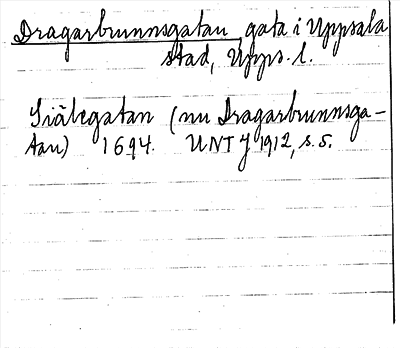 Dragarbrunnsgatan, gata i Uppsala
stad, Upps. l.
(nu Dragarbrunnsga-
tan) 1694. UNT 1912, s. 5.